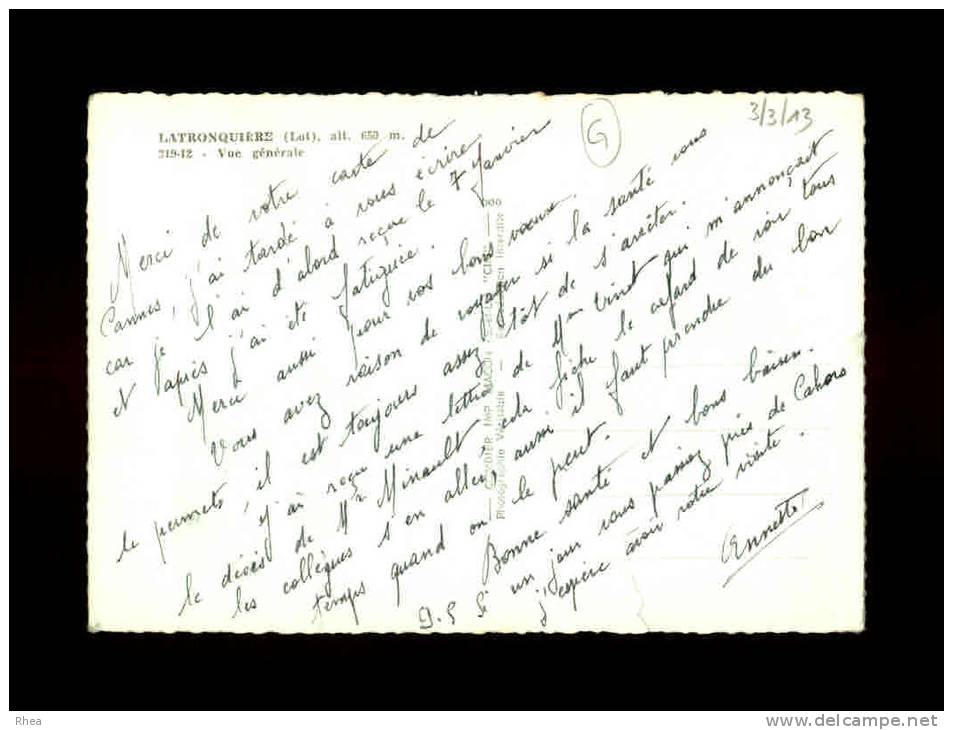 LATRONQUIÈRE (Lot), alt. 650 m.
219-12 - Vue générale
3/3/13
G
Merci de votre carte de
Cannes, j'ai tardé à vous écrire
car je l'ai d'abord reçue le 7 Janvier
et après j'ai été fatiguée.
Merci aussi pour vos bons voeux.
Vous avez raison de voyager si la santé vous
le permets, il est toujours assez tôt de s'arrêter.
J'ai reçu une lettre de Mme Vint qui m'annonçait
le décès de Mr Minault cela fiche le cafard de voir tous
les collègues s'en aller, aussi il faut prendre du bon
temps quand on le peut.
Bonne santé et bons baisers.
P.S Si un jour vous passiez près de Cahors
j'espère avoir votre visite.
Annette
Photographie Véritable - Reproduction Interdite
Rhea
www.delcampe.net